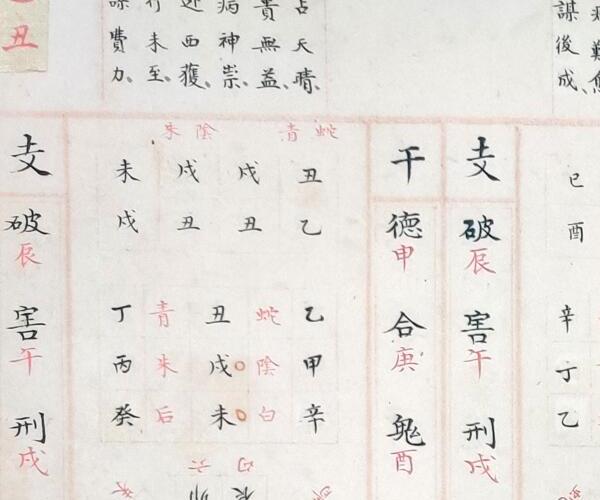 謀後成、
占天晴、
貴無益、
病神祟、
迯西獲、
行未至、
謀費力、
丑
巳酉
辛丁乙
支
破辰害午刑戌
干
德申合庚鬼酉
蛇青陰朱
丑乙
戌丑
戌丑
未戌
乙甲辛
蛇陰白
丑戌未
青朱后
丁丙癸
六
支
破辰害午刑戌